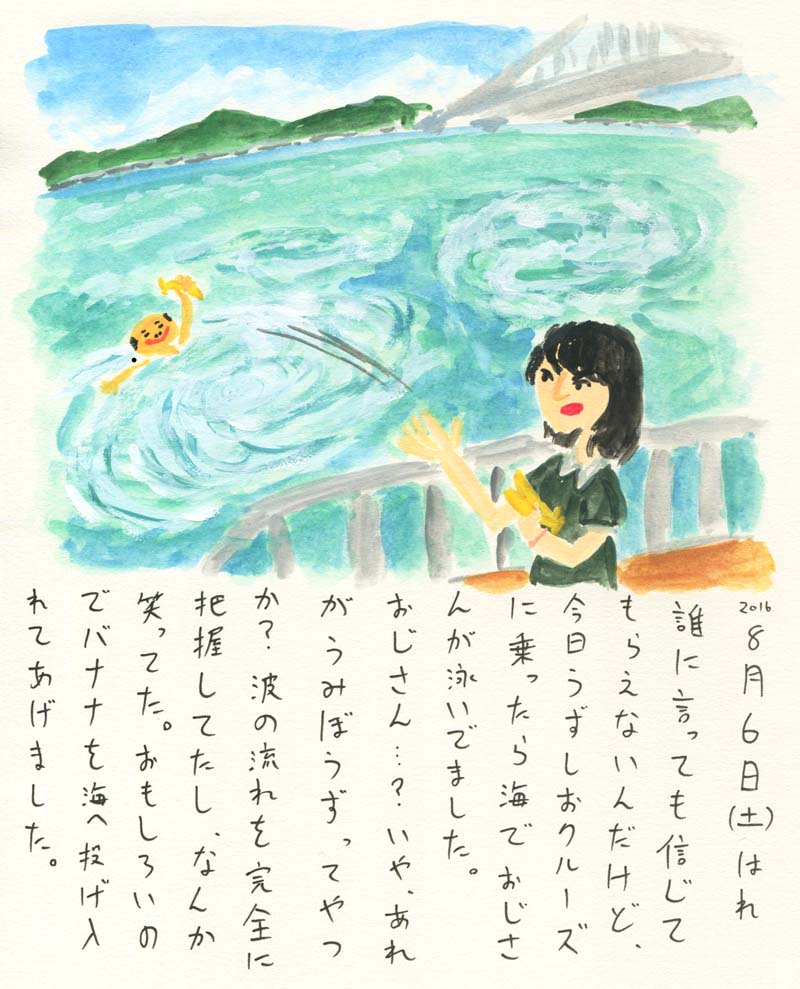 2016
8月6日(土)はれ
誰に言っても信じて
もらえないんだけど、
今日うずしおクルーズ
に乗ったら海でおじさ
んが泳いでました。
おじさん…?いや、あれ
がうみぼうずってやつ
か?波の流れを完全に
把握してたし、なんか
笑ってた。おもしろいの
でバナナを海へ投げ入
れてあげました。